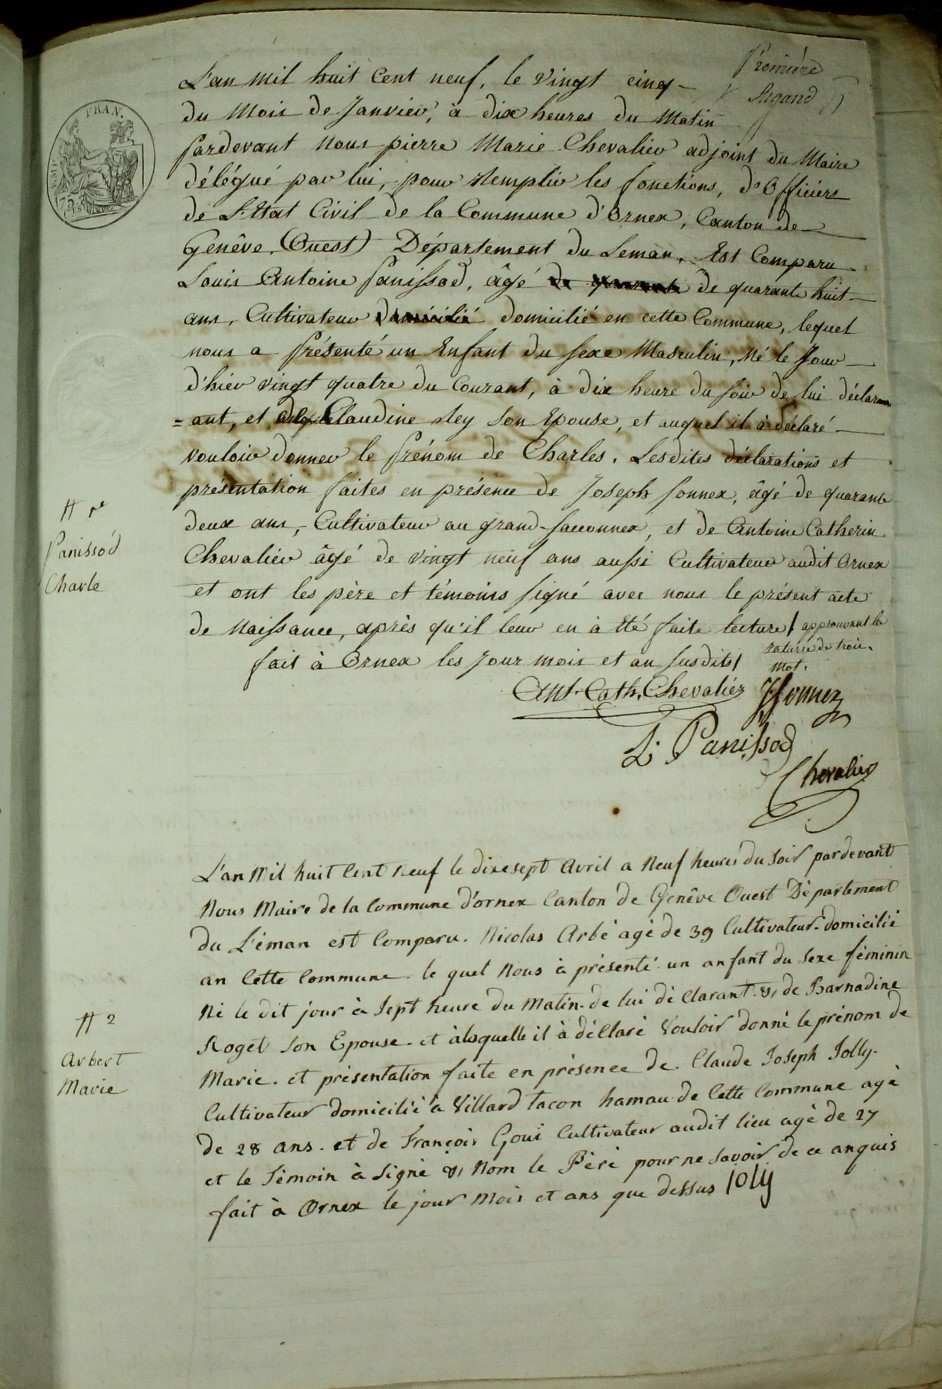 Première
Argand
L'an mil huit Cent neuf, le vingt cinq
du Mois de Janvier, à dix heures du Matin
pardevant nous pierre Marie Chevalier adjoint du Maire
délégué par lui, pour Remplir les fonctions, d'Officiers
de L'Etat Civil de la Commune d'Ornex, Canton de
Genêve (Ouest) Département du Leman, Est Comparu
Louis Antoine Panissod, âgé de quarante huit
ans, Cultivateur domicilié en cette Commune, lequel
nous a Présenté un Enfant du sexe Masculin, Né le Jour
d'hier vingt quatre du Courant, à dix heure du soir de lui déclarant
= ant, et Claudine Rey son Epouse, et auquel il à déclaré
vouloir donner le Prénom de Charles. Lesdites déclarations et
présentation faites en présence de Joseph Sonnex, âgé de quarante
deux ans, Cultivateur au grand-Sacconnex, et de Antoine Catherin
Chevaliér âgé de vingt neuf ans aussi Cultivateur audit Ornex
et ont les père et témoins signé avec nous le présent acte
de Naissance, après qu'il leur en à été faite lecture / approuvant la
rature de trois
mot.
fait à Ornex les Jour mois et an susdits /
# 1er
Panissod
Charle
Ant. Cath. Chevaliér JSonnex
L. Panissod
Chevalier
L'an Mil huit Cent neuf le dixesept Avril a Neuf heures du Soir pardevant
Nous Maire de la Commune d'ornex Canton de Genêve Ouest Département
du Léman est Comparu. Nicolas Arbé agé de 39 Cultivateur domicilié
an Cette Commune. le quel Nous à présenté un anfant du Sexe féminin
Né le dit jour à Sept heure du Matin de lui déClarant & de Barnadine
Rogel Son Epouse. et àlaquelle il à déClaré Vouloir donné le prénom de
Marie. et présentation faite en présence de Claude Joseph Jolly.
Cultivateur domicilié à Villard tacon hamau de Cette Commune agé
de 28 ans. et de François Goui Cultivateur audit lieu agé de 27
et le Témoin à Signé & Nom le Péré pour ne Savoir de ce anquis
fait à Ornex le jour Mois et ans que dessus Joly
# 2
Arbert
Marie